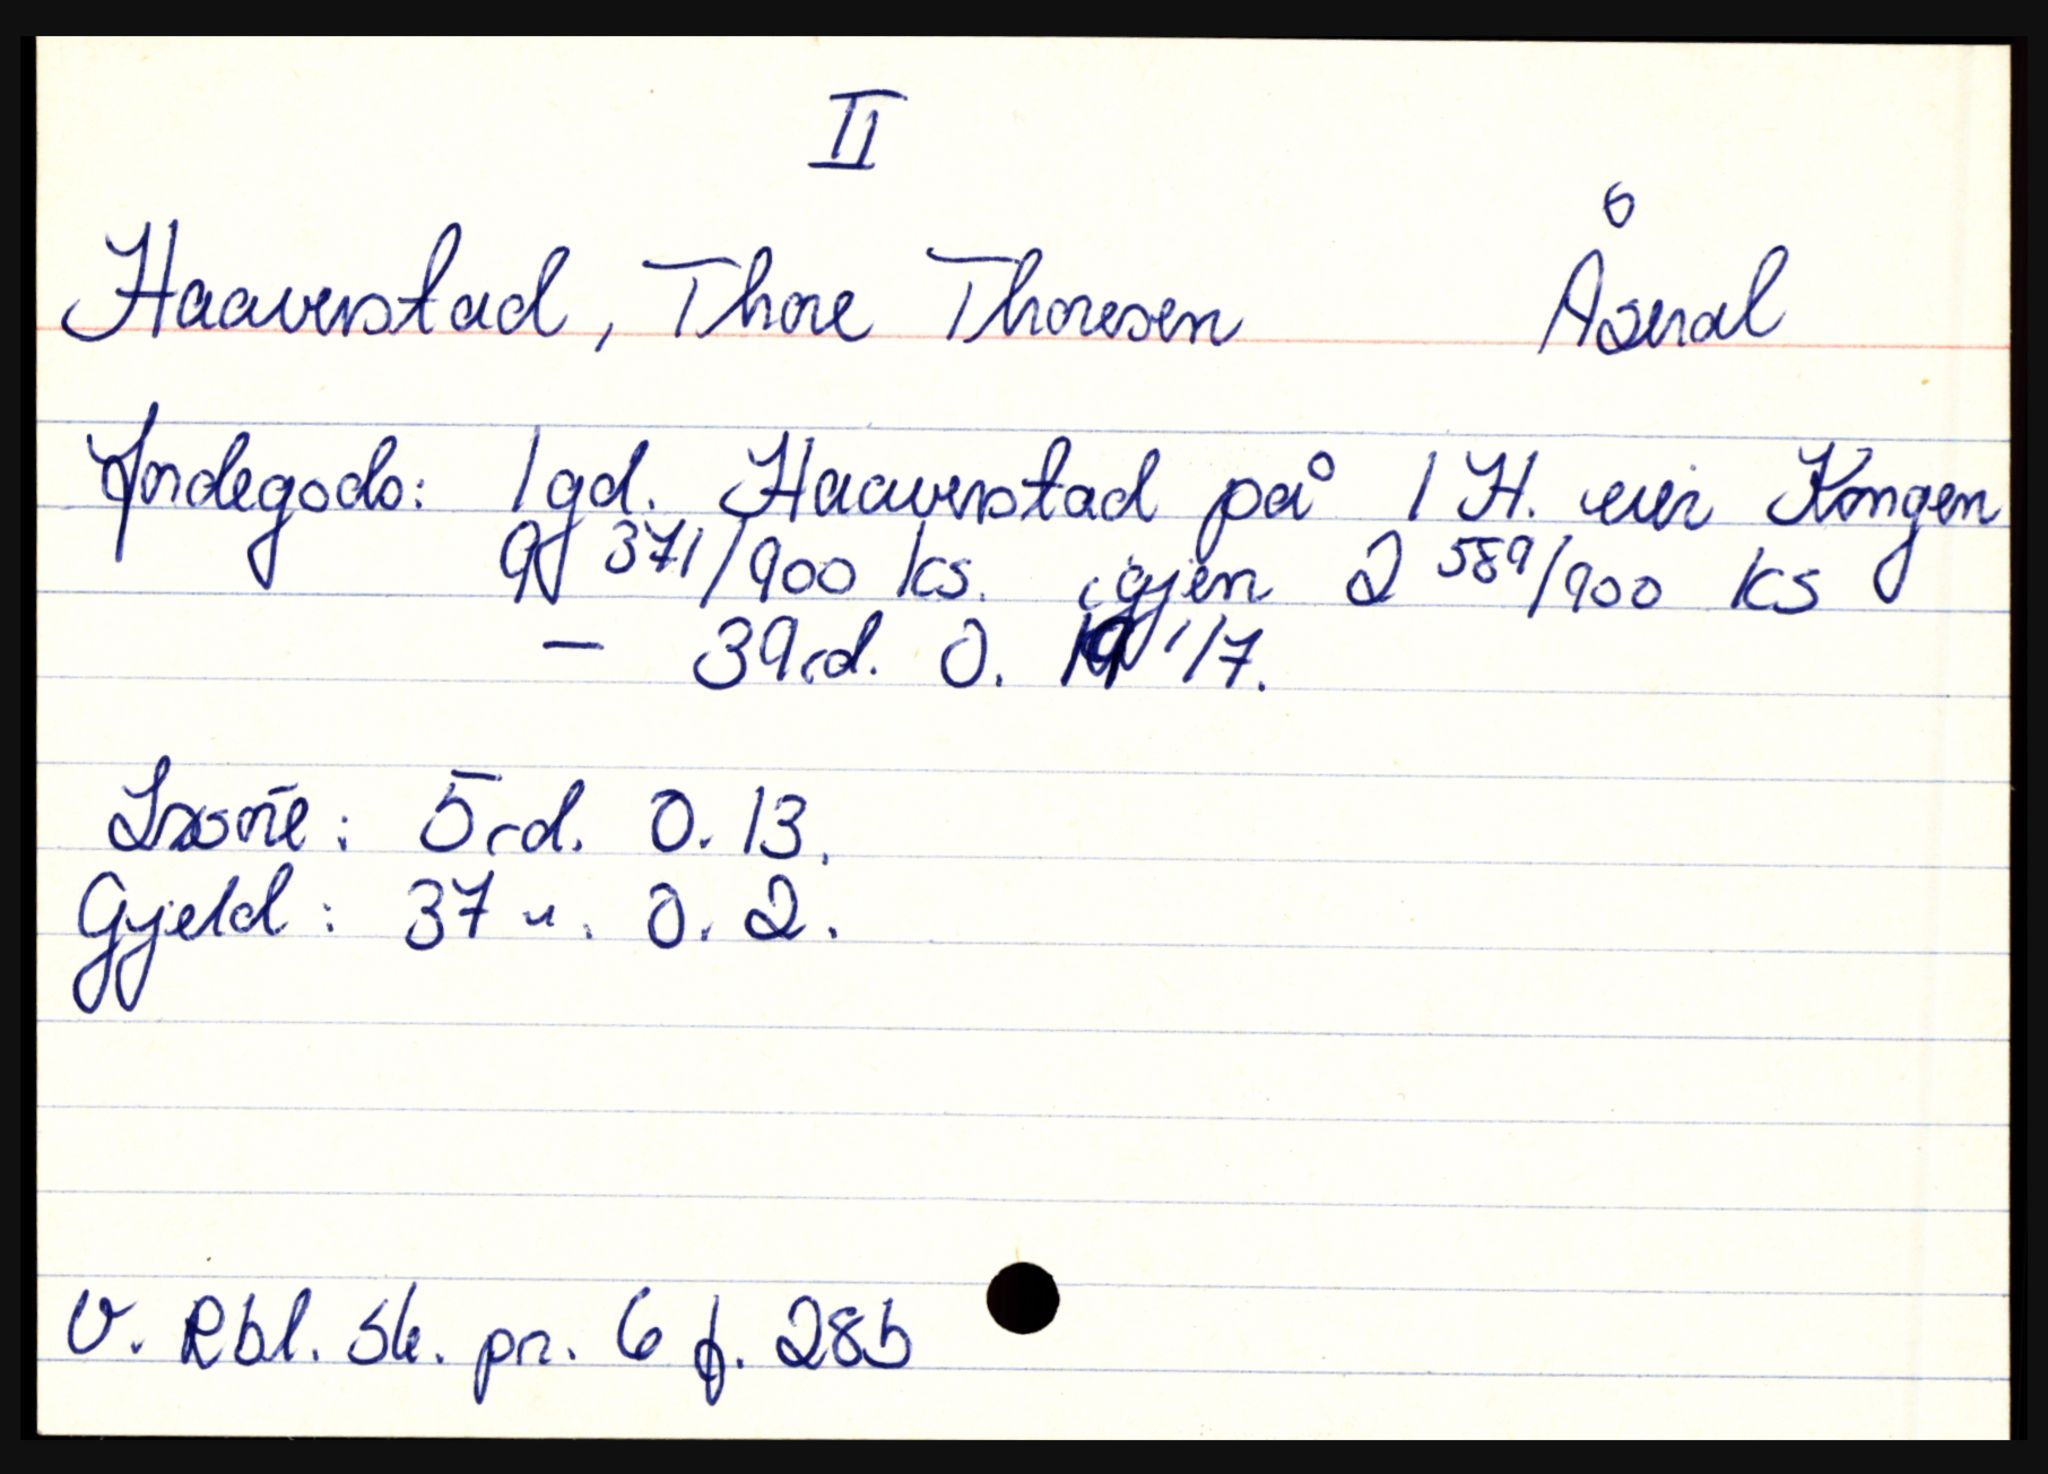 II
6
Haaverstad, Thore Thoresen Åseral
Jordegods: 1 gd. Haaverstad på 1 H. eier Kongen
9 371/900 ks. igjen 2 589/900 ks
— 39 rd. 0. 19 1/7.
Løsøre: 5 rd. 0. 13.
Gjeld: 37 ". 0. 2.
V. Rbl. Sk. pr. 6 f. 28b